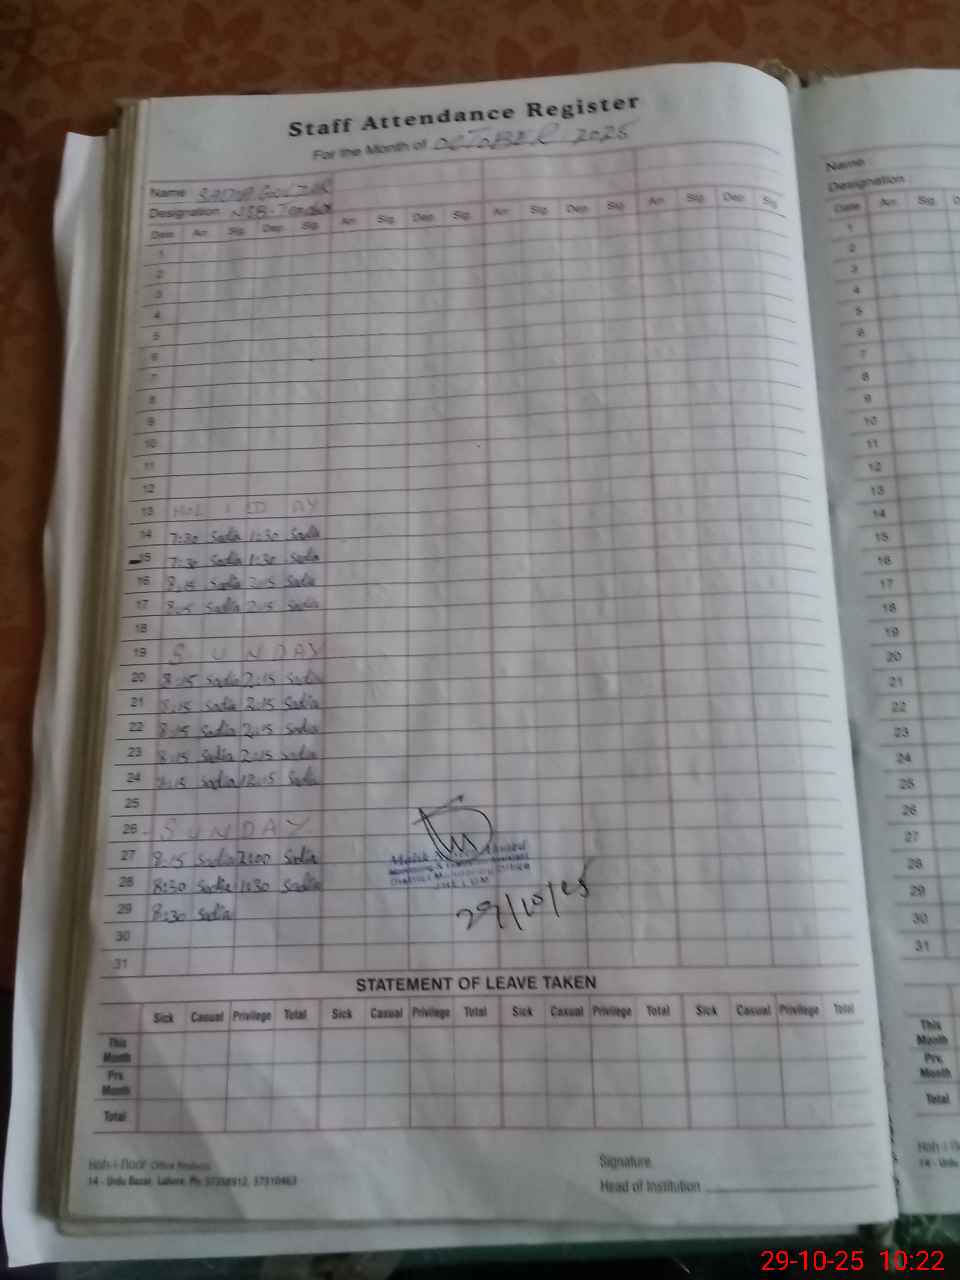 Staff Attendance Register
For the Month of OCTOBER 2025
Name : SADIA GULZAR
Designation : NSB-
Date Arr. Sig. Dep. Sig. Arr. Sig. Dep. Sig. Arr. Sig. Dep. Sig. Arr. Sig. Dep. Sig.
1
2
3
4
5
6
7
8
9
10
11
12
13 HOLIDAY
14 7:30 Sadia 1:30 Sadia
15 7:30 Sadia 1:30 Sadia
16 8:15 Sadia 2:15 Sadia
17 8:15 Sadia 2:15 Sadia
18
19 SUNDAY
20 8:15 Sadia 2:15 Sadia
21 8:15 Sadia 2:15 Sadia
22 8:15 Sadia 2:15 Sadia
23 8:15 Sadia 2:15 Sadia
24 8:15 Sadia 12:15 Sadia
25
26 SUNDAY
27 8:15 Sadia 2:00 Sadia
28 8:30 Sadia 1:30 Sadia
29 8:30 Sadia
30
31
Malik
JHELUM
29/10/25
STATEMENT OF LEAVE TAKEN
Sick Casual Privilege Total Sick Casual Privilege Total Sick Casual Privilege Total Sick Casual Privilege Total
This Month
Prv. Month
Total
Koh-i-Noor Office Products
14 - Urdu Bazar, Lahore. Ph:
Signature
Head of Institution
Name :
Designation :
Date Arr. Sig.
1
2
3
4
5
6
7
8
9
10
11
12
13
14
15
16
17
18
19
20
21
22
23
24
25
26
27
28
29
30
31
This Month
Prv. Month
Total
Koh-i-Noor
14 - Urdu
29-10-25 10:22